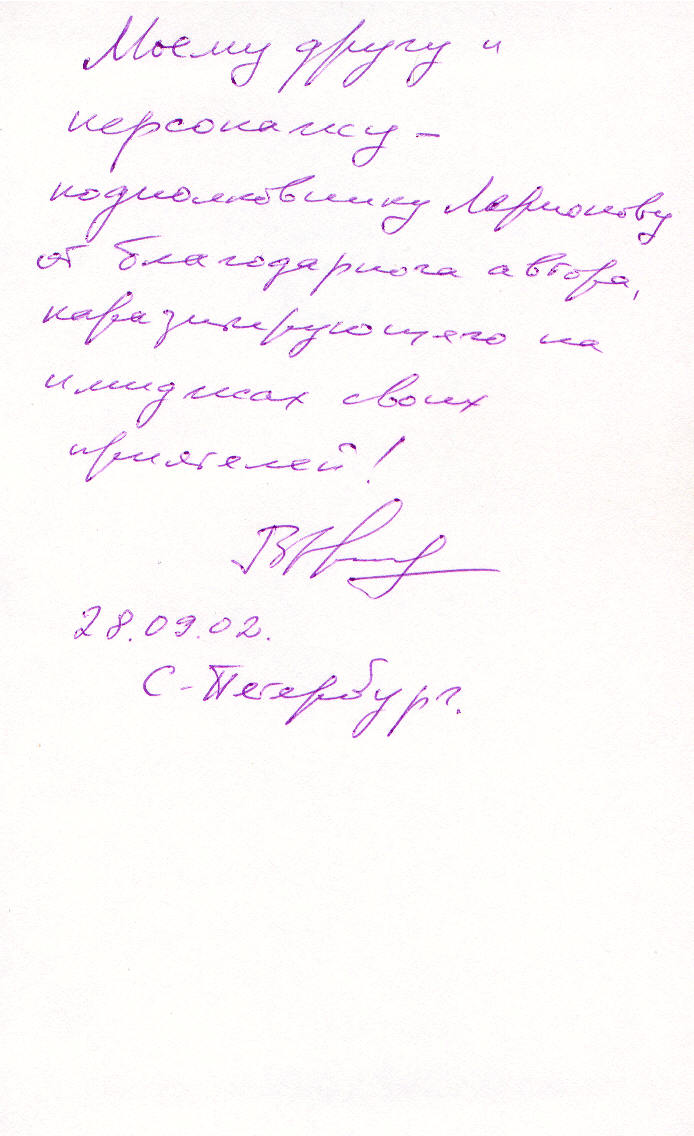 Моему другу и
персонажу –
подполковнику Ларионову
от благодарного автора,
паразитирующего на
имиджах своих
приятелей!
28.09.02.
С-Петербург.